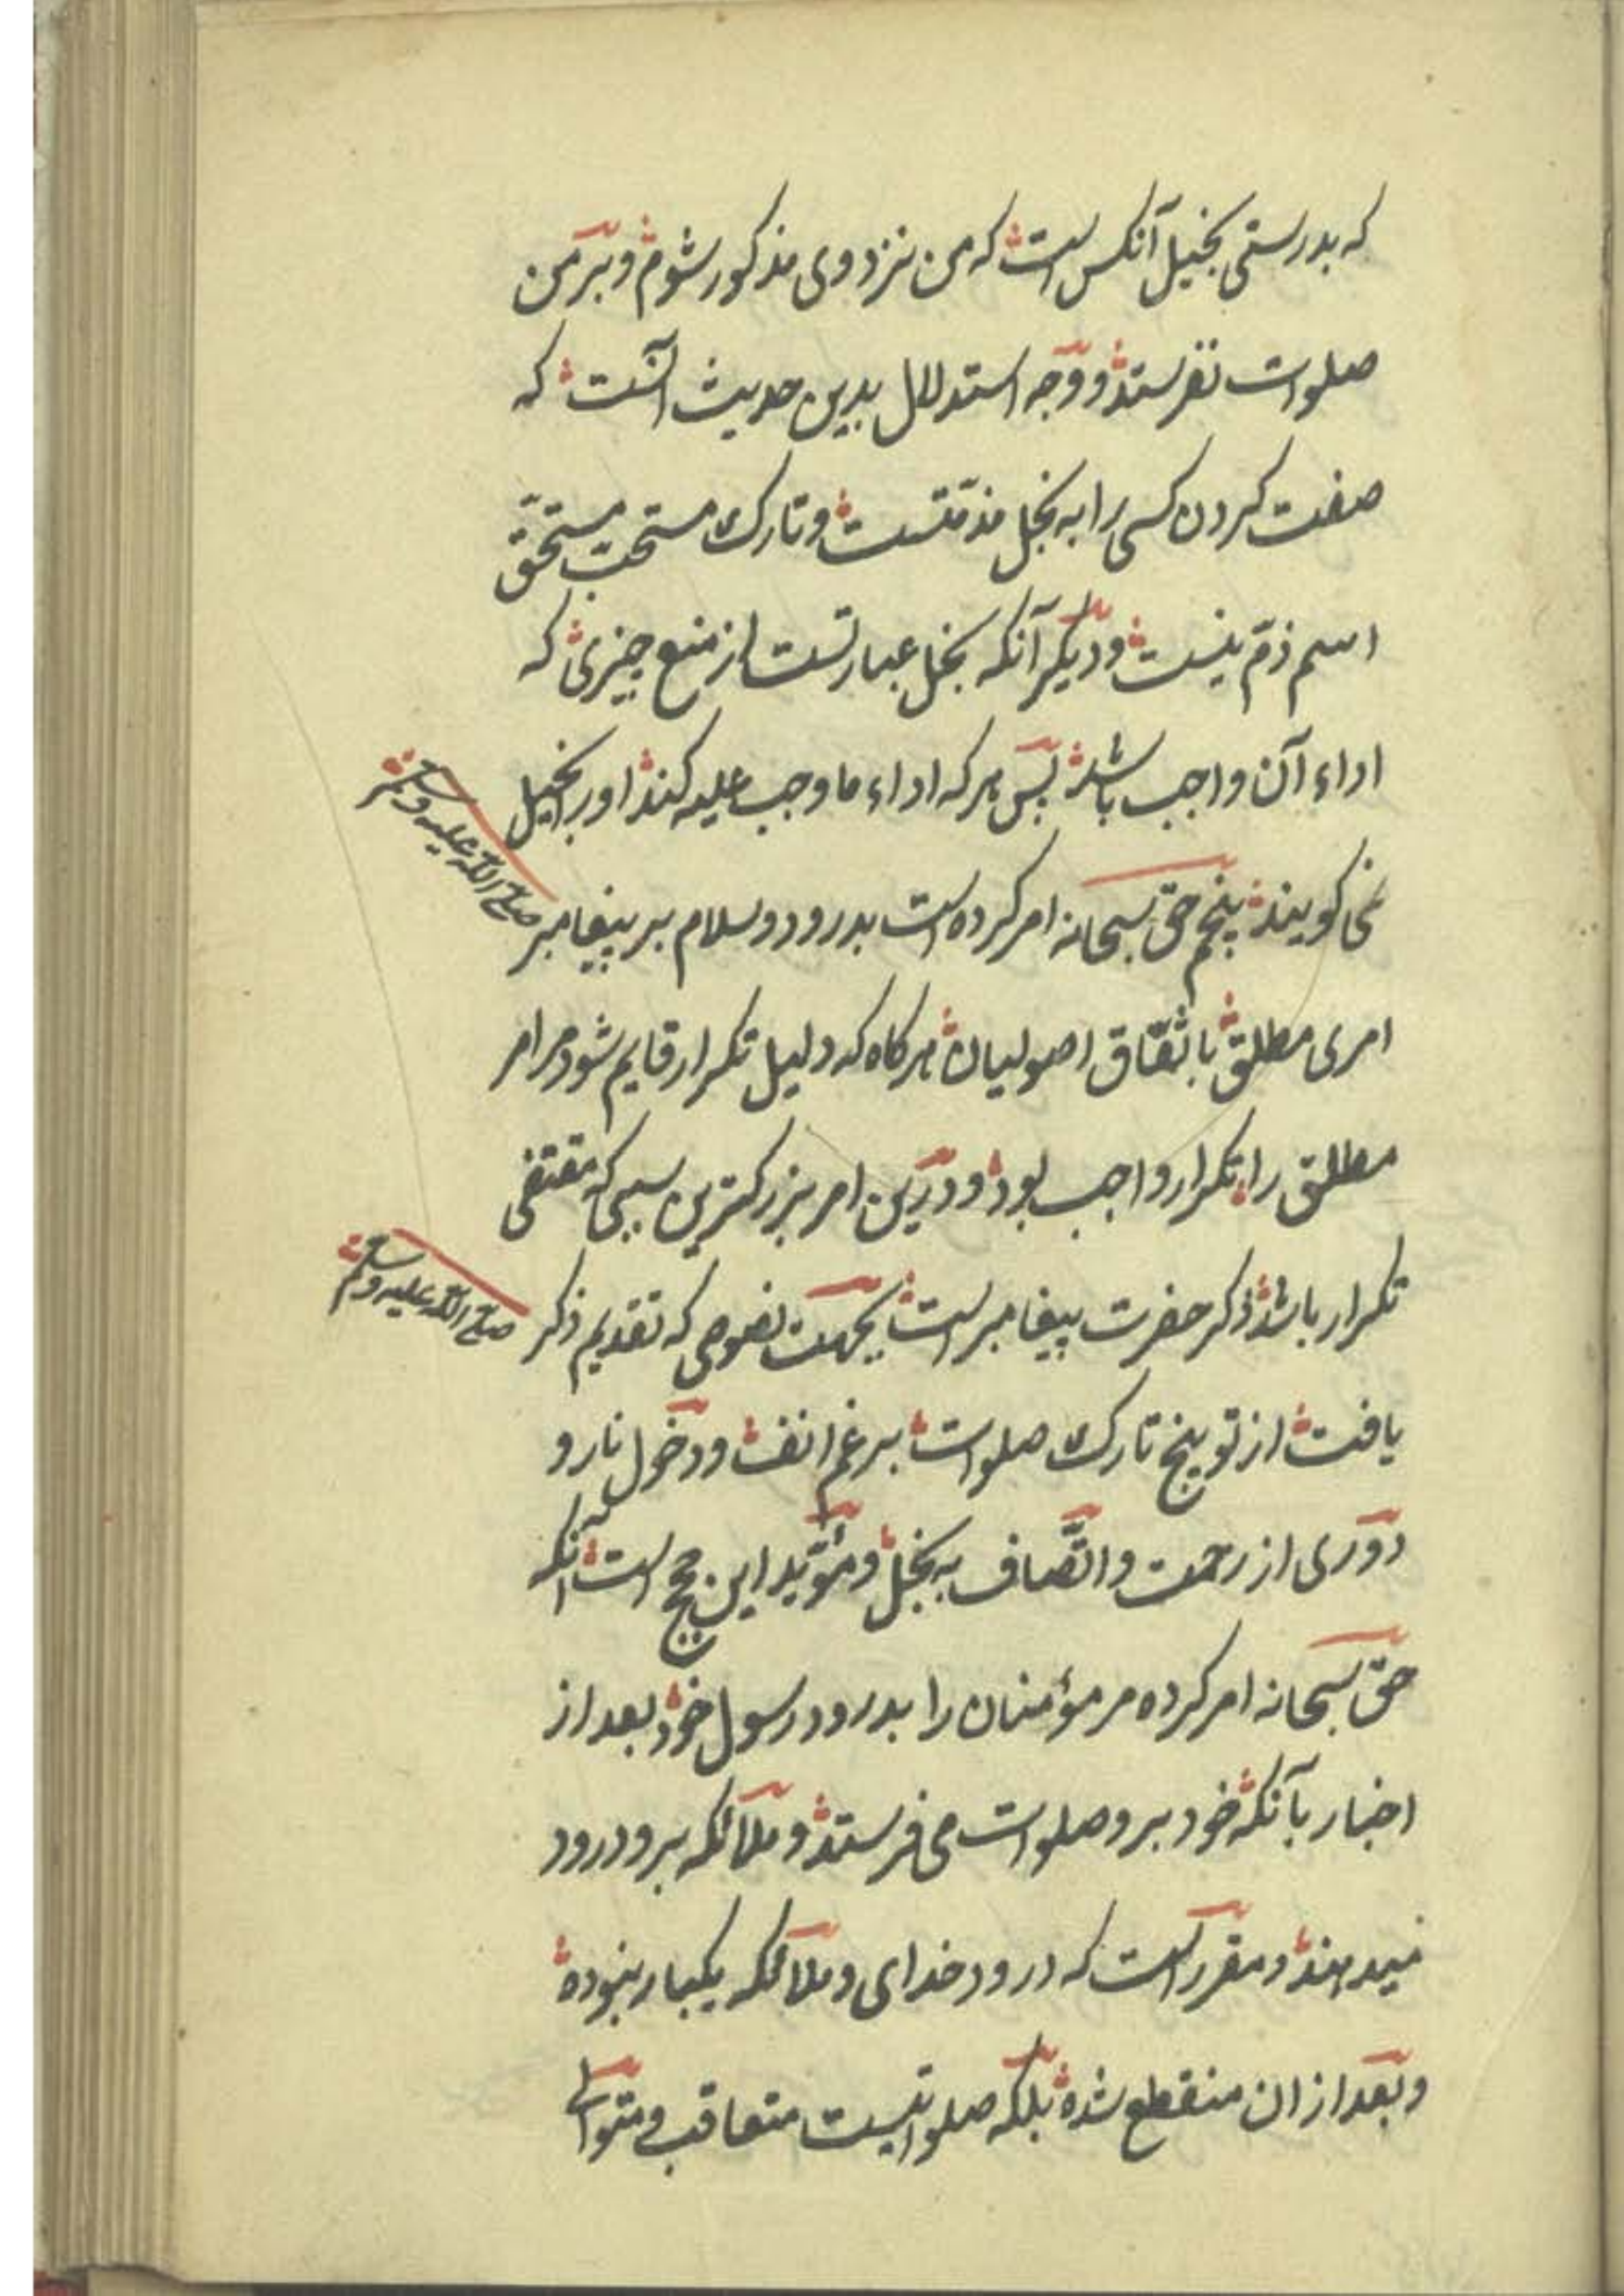 که بدرستی بخیل آنکس است که من نزد وی مذکور شوم و بر من
صلوات نفرستد و وجه استدلال بدین حدیث آنست که
صفت کردن کسی را به بخل مذمتست و تارک مستحب مستحق
اسم ذم نیست و دیگر آنکه بخل عبارتست از منع چیزی که
اداء آن واجب باشد پس هر که اداء ما وجب علیه کند او را بخیل
نمی کویند پنجم حق سبحانه امر کرده است بدرود و سلام بر پیغامبر صلی الله علیه و سلم
امری مطلق باتفاق اصولیان هرکاه که دلیل تکرار قایم شود مر امر
مطلق را تکرار واجب بود و درین امر بزرکترین سببی که مقتضی
تکرار باشد ذکر حضرت پیغامبر است بجهت نصوصی که تقدیم ذکر صلی الله علیه و سلم
یافت از توبیخ تارک صلوات برغم انف و دخول نار و
دوری از رحمت و اتّصاف به بخل و مؤیّد این حجج است آنکه
حق سبحانه امر کرده مر مؤمنان را بدرود رسول خود بعد از
اخبار بآنکه خود برو صلوات می فرستد و ملآئکه برو درود
میدهند و مقرر است که درود خدای و ملآئکه یکبار نبوده
و بعد از ان منقطع شده بلکه صلواتیست متعاقب و متوالی